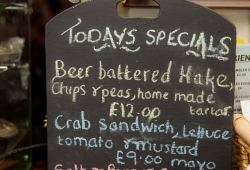 TODAYS SPECIALS
Beer battered Hake,
Chips & peas, home made
tartar
£12.00
Crab Sandwich, lettuce
tomato & mustard
£9.00 mayo